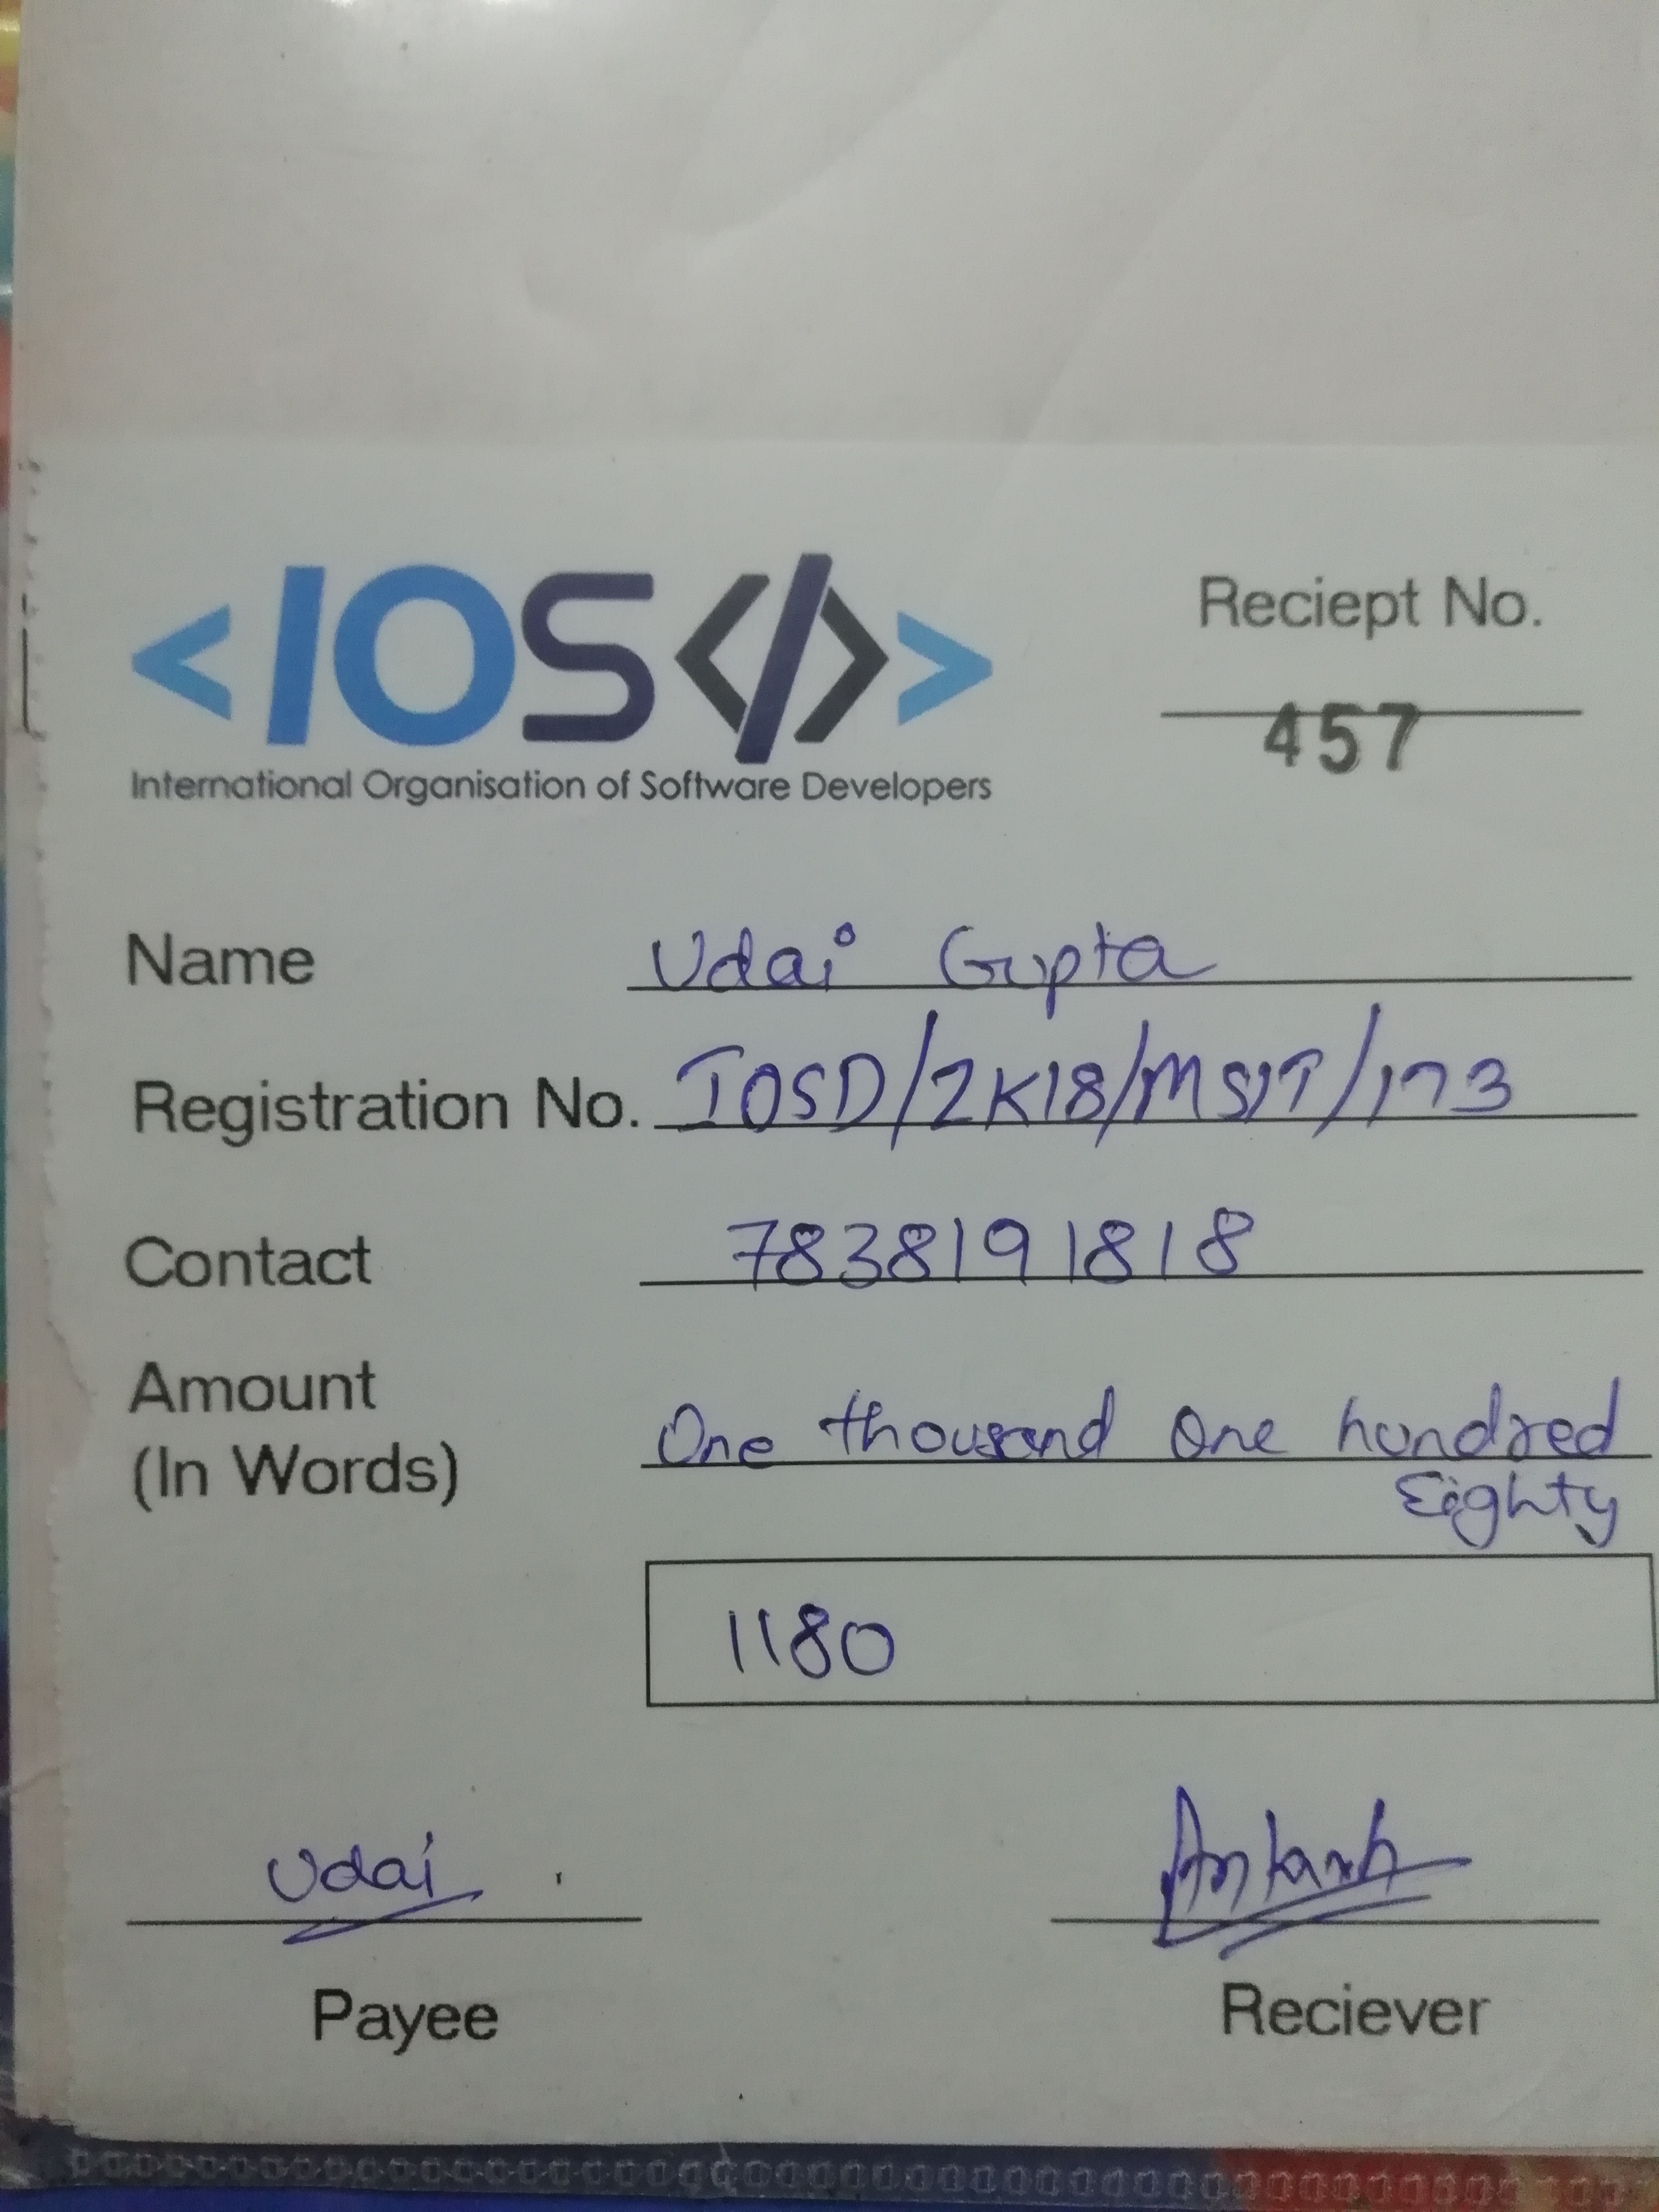 <IOS</>>
International Organisation of Software Developers
Reciept No.
457
Name Udai Gupta
Registration No. IOSD/2K18/MSIT/173
Contact 7838191818
Amount
(In Words) One thousand One hundred
Eighty
1180
Udai
Payee
Reciever